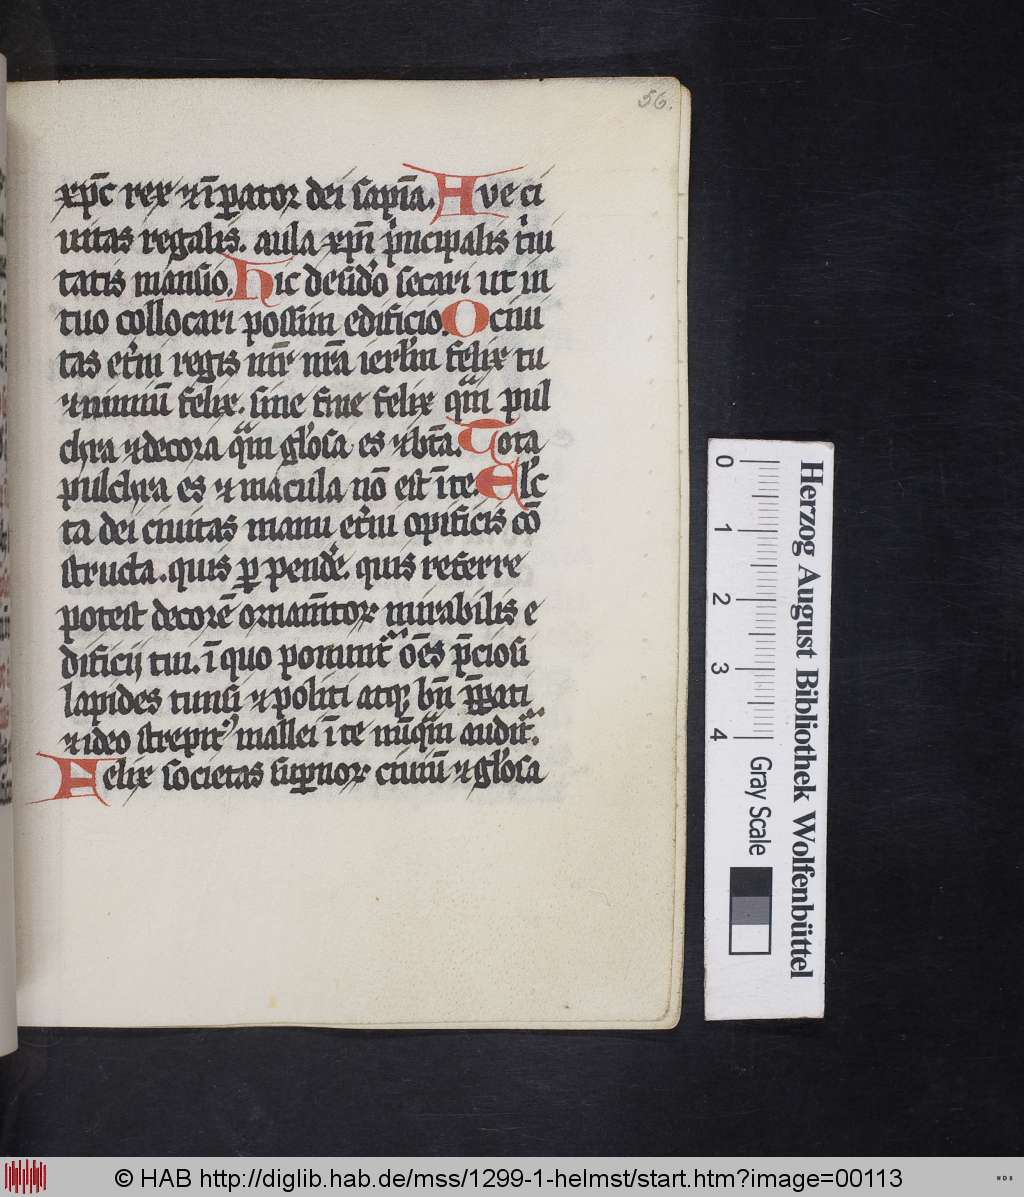 56.
xp̄c rex ⁊ ī ꝑator dei sapīa. Ave ci
uitas regalis. aula xp̄i p̄ncipalis t̓ni
tatis mansio. Hic desid̓o secari ut in
tuo collocari possim edificio. O ciui
tas et̓ni regis nr̄i nr̄a ierl̓m felix tu
⁊ nimiū felix. sine fine felix qm̄ pul
chra ⁊ decora qm̄ gl̓osa es ⁊ btā. Tota
pulchra es ⁊ macula nō est ī te. Elc̄
ta dei ciuitas manu et̓ni opificis cō
structa. quis ꝑ pendet. quis referre
potest decorē ornamn̄tor mirabilis e
dificij tui. ī quo ponunt̄ oēs p̄ciosi
lapides tunsi ⁊ politi atqꝫ bn̄ p̄ꝑati
⁊ ideo strepit᷒ mallei ī te nūqm̄ audit̄.
Felix societas suꝑnor ciuiū ⁊ gl̓osa
Herzog August Bibliothek Wolfenbüttel
0 1 2 3 4
Gray Scale
© HAB http://diglib.hab.de/mss/1299-1-helmst/start.htm?image=00113